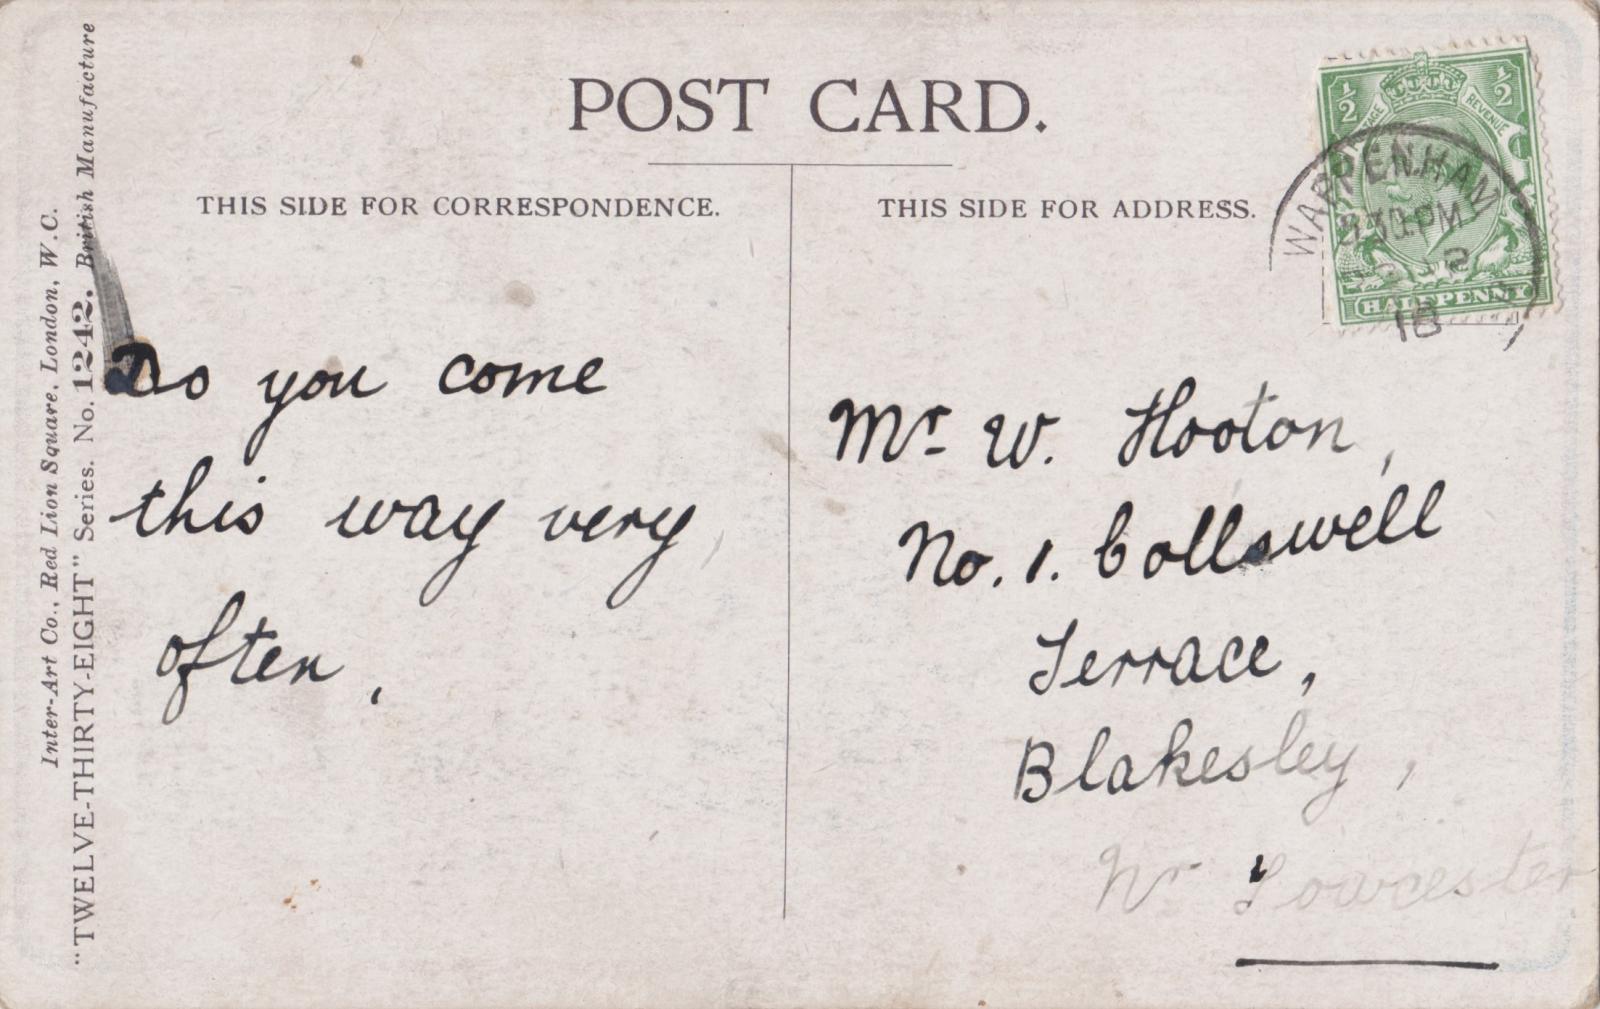 POST CARD.
THIS SIDE FOR CORRESPONDENCE.
THIS SIDE FOR ADDRESS.
Inter-Art Co., Red Lion Square, London, W.C.
"TWELVE-THIRTY-EIGHT" Series. No. 1242. British Manufacture
Do you come
this way very
often,
½ ½
REVENUE
HALFPENNY
WAPPENHAM
30 PM
2
18
Mr W. Hooton,
No. 1. Collswell
Terrace,
Blakesley,
Nr Towcester